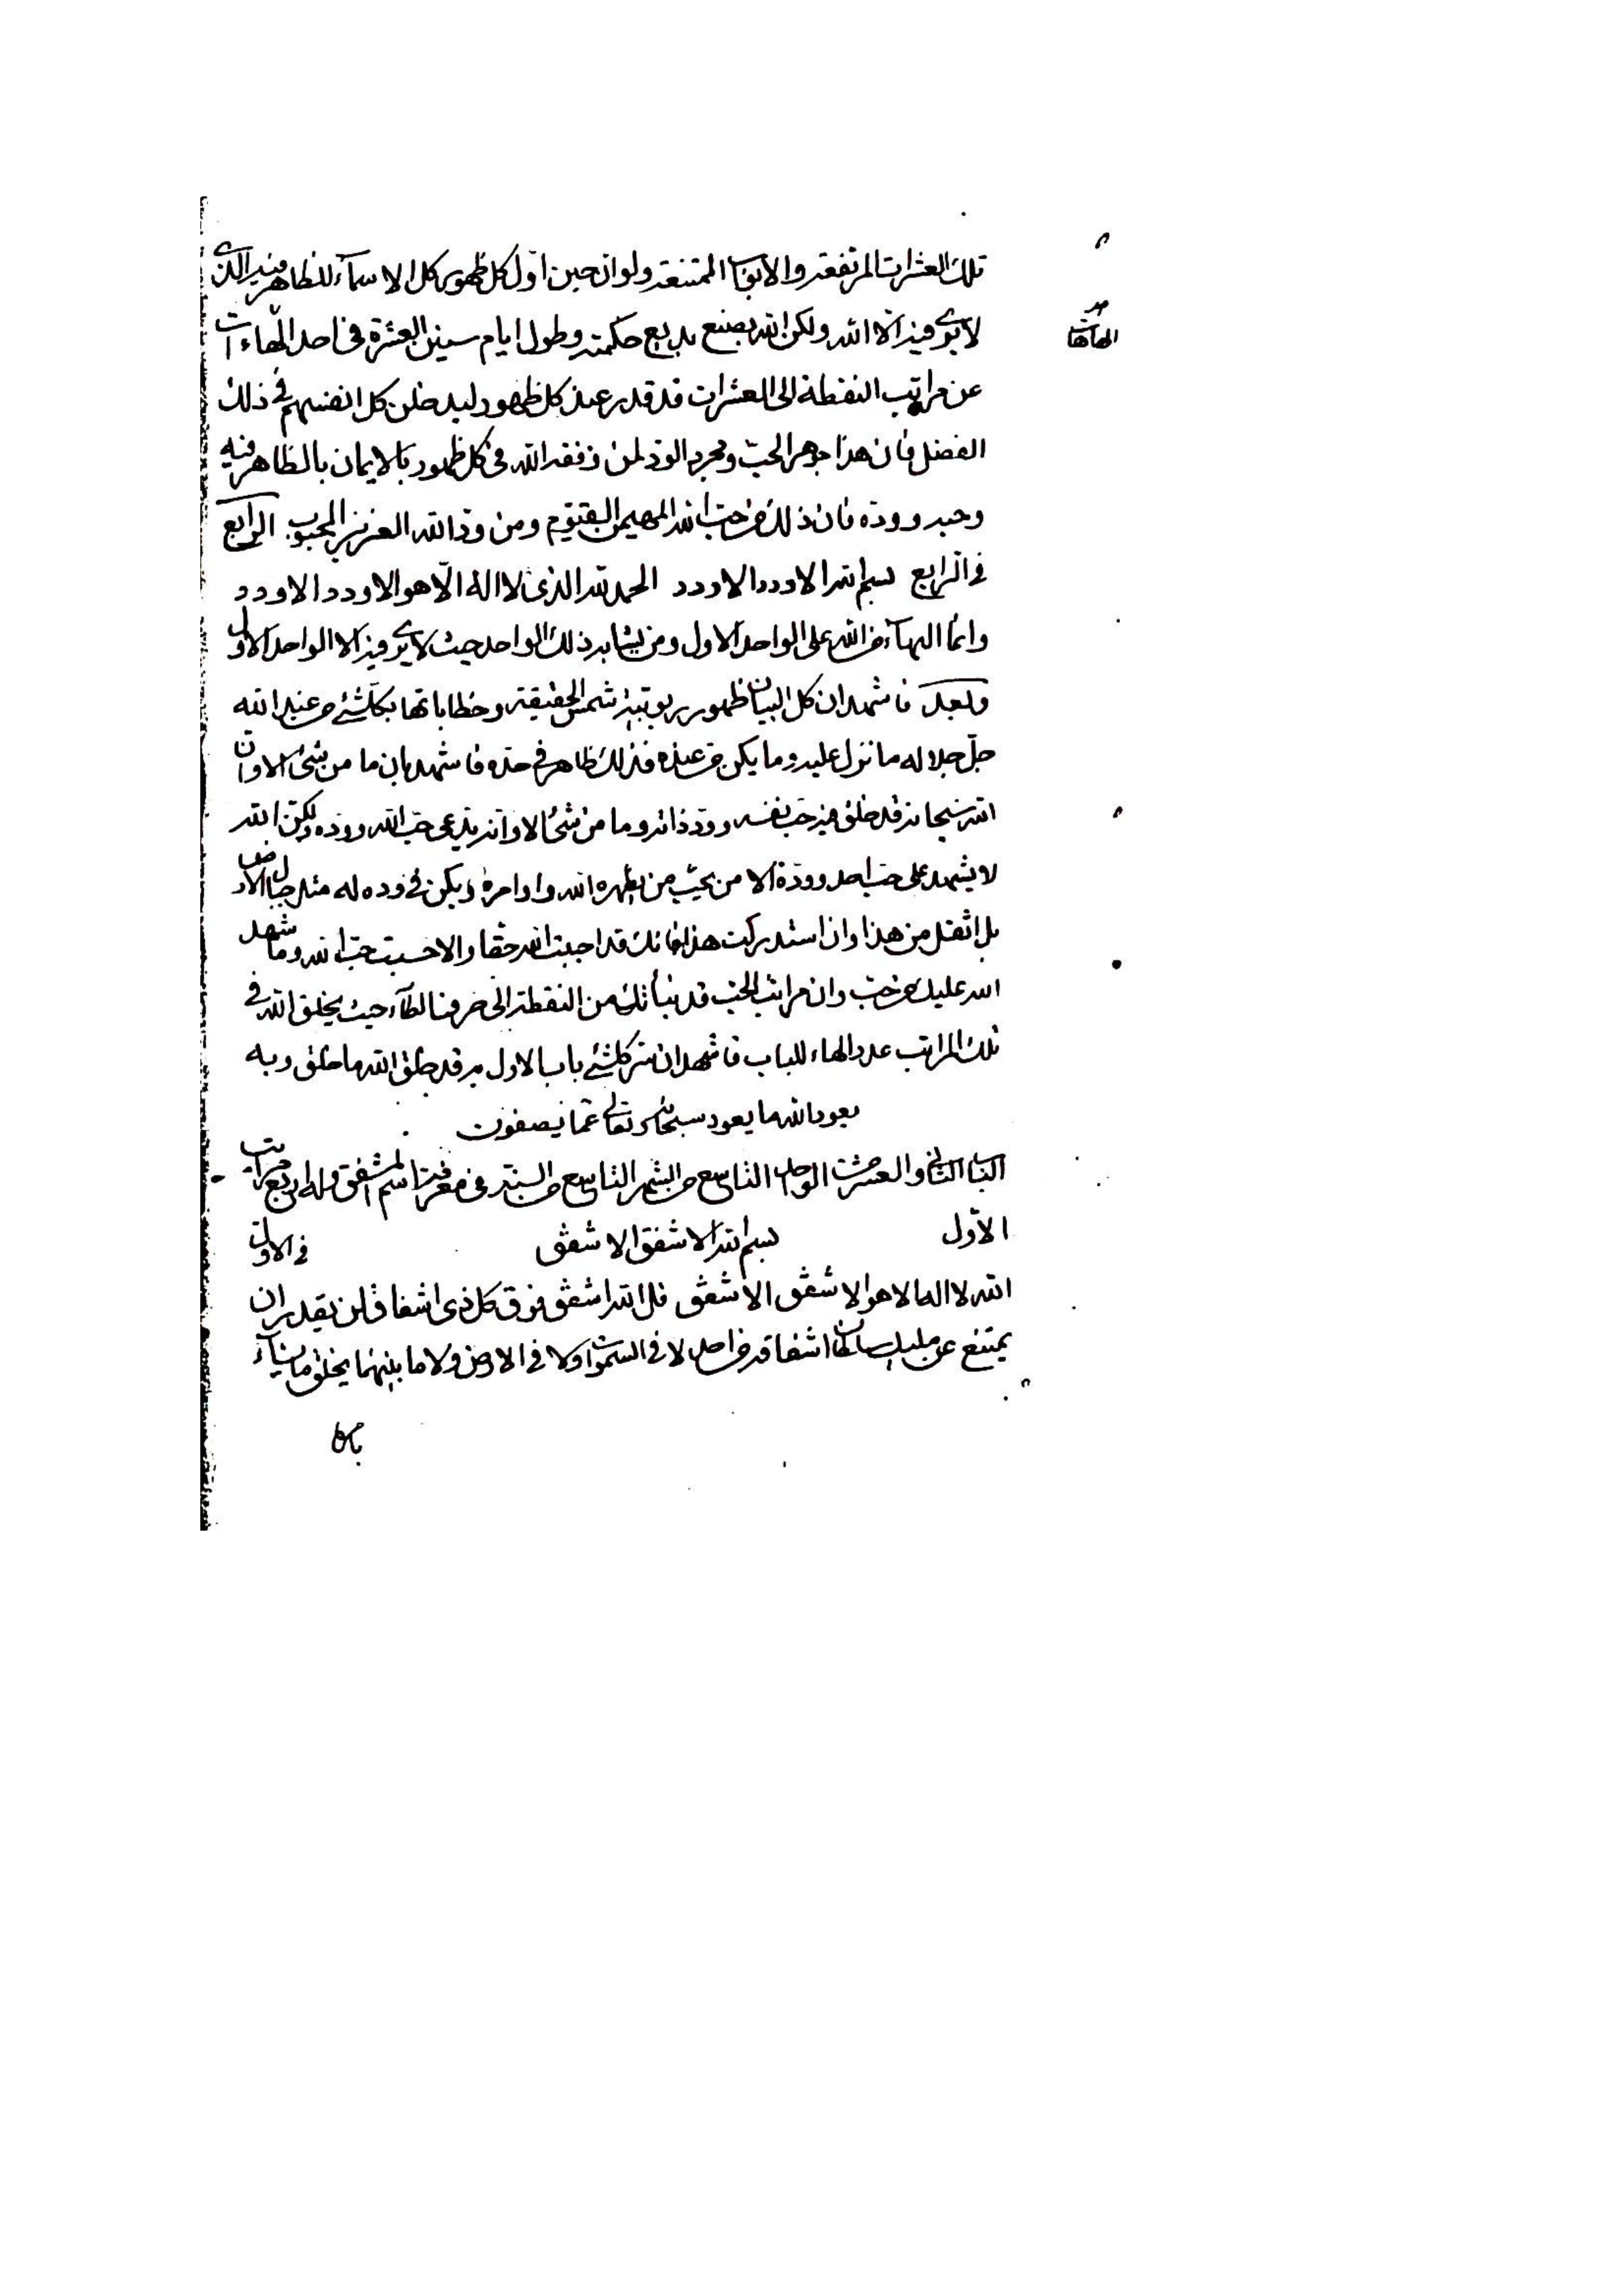 تلك العشرات المرتفعة والابواب الممتنعة ولو ان حين اول كل ظهور كل الاسمآء للظاهر فيه الذى
لا يرى فيه الا الله ولكن الله يصنع بديع حكمته وطول ايام سنين العشرة فى احد الهاءات
الهاآت
عن مراتب النقطة الى العشرات قد قدر عند كل ظهور ليدخلن كل انفسهم فى ذلك
الفضل فان هذا جوهر الحب ومجرد الود لمن وفقه الله فى كل ظهور بالايمان بالظاهر فيه
وحبه ووده فان ذلك من حب الله المهيمن القيوم ومن ود الله العزيز المحبوب الرابع
فى الرابع بسم الله الاودد الاودد الحمد لله الذى لا اله الا هو الاودد الاودد
وانما البهآء من الله على الواحد الاول ومن يشابه ذلك الواحد حيث لا يرى فيه الا الواحد الاول
وبعد فاشهد ان كل البيان ظهور ربوبية شمس الحقيقة وخطاباتها بكلشئ من عند الله
جل جلاله ما نزل عليه وما يكن من عنده فذلك ظاهر فى حده فاشهد بان ما من شئ الا وان
الله سبحانه قد خلق فيه حب نفسه وود ذاته وما من شئ الا وانه يدعى حب الله ووده ولكن الله
لا يشهد على حب احد ووده الا من يحب من يظهره الله واوامره ويكن فى وده له مثل جبال الارض
بل اثقل من هذا وان استدركت هذا فانك قد احببت الله حقا والا حسبت حب الله وما شهد
الله عليك من حب وان مراتب الحب قد نبأتك من النقطة الى حرف الطآء حيث يخلق الله فى
تلك المراتب عدد الهاء للباب فاشهد ان سر كلشئ باب الاول به قد خلق الله ما خلق وبه
يعود الله ما يعود سبحانه وتعالى عما يصفون
الباب الثانى والعشر من الواحد التاسع من الشهر التاسع من السنة فى معرفة اسم المشفق وله اربع مراتب
الاول بسم الله الاشفق الاشفق فى الاول
الله لا اله الا هو الاشفق الاشفق قل الله اشفق فوق كل ذى اشفاق لن يقدر ان
يمتنع عن مليك سلطان اشفاقه من احد لا فى السموات ولا فى الارض ولا ما بينهما يخلق ما يشآء
بامره